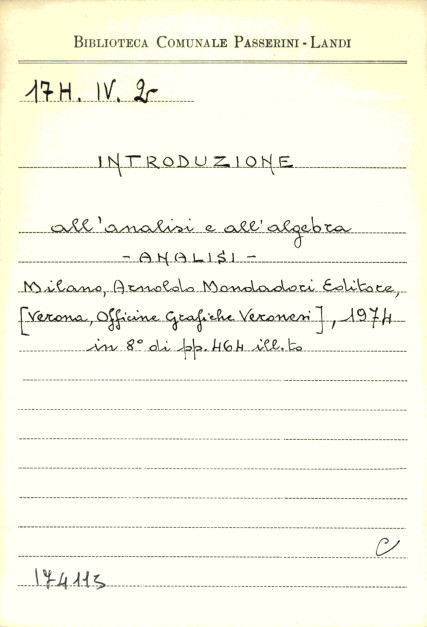 BIBLIOTECA COMUNALE PASSERINI - LANDI
17 H. IV. 2
INTRODUZIONE
all'analisi e all'algebra
- ANALISI -
Milano, Arnoldo Mondadori Editore,
[Verona, Officine Grafiche Veronesi], 1974
in 8° di pp. 464 ill.to
C
174113